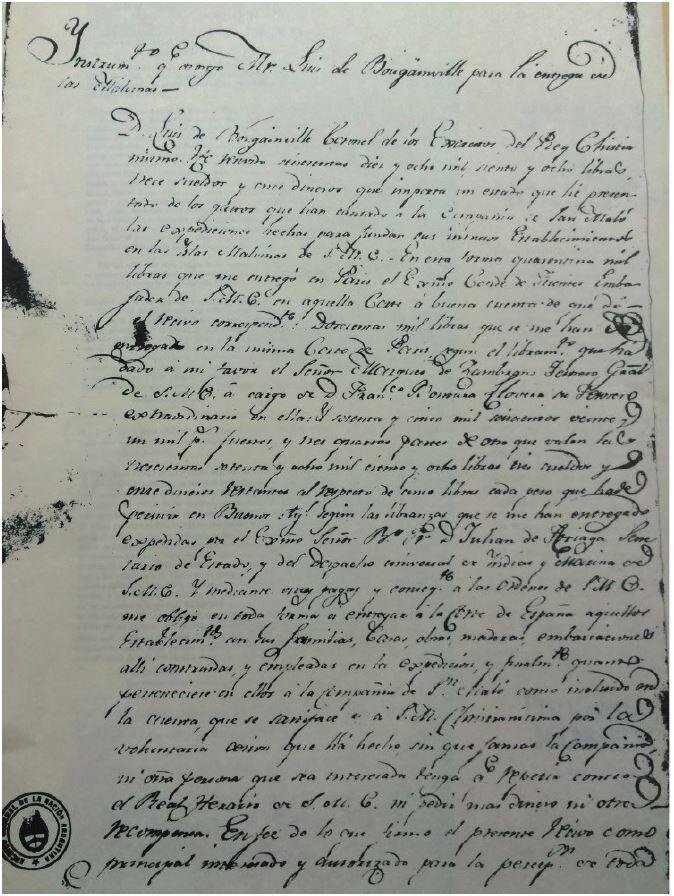 Instrum.to q.e otorgó Mr. Luis de Bougainville para la entrega de
las Malvinas —
D. Luis de Bougainville Coronel de los Exercitos del Rey Christia
nisimo. He recivido seiscientas diez y ocho mil ciento y ocho libras,
trece sueldos y once dineros que importa un estado que hé presen-
tado de los gastos que han causado a la Compañia de San Maló
las expediciones hechas para fundar sus intrusos Establecimientos
en las Yslas Malvinas de S.M.C. - En esta forma quarenta mil
libras que me entregó en Paris el Exmo. Conde de Fuentes Emba-
jador de S.M.C. en aquella Corte á buena cuenta de que dí
el recivo correspond.te: Doscientas mil libras que se me han de
entregar en la misma Corte de Paris, segun el libram.to que ha
dado a mi favor el Señor Marques de Zambrano Tesorero Gral
de S.M.C. á cargo de D. Fran.co Llovera su Tesorero
extraordinario en ella: Y setenta y cinco mil seiscientos veinte y
un mil p.s fuertes, y tres quartas partes de otro que valen las
trescientas setenta y ocho mil ciento y ocho libras tres sueldos y
once dineros restantes al respecto de cinco libras cada peso que hé de
percivir en Buenos Ay.s según las libranzas que se me han entregado
expedidas por el Exmo Señor B.o Fr. D. Julian de Arriaga Secre
tario de Estado, y del Despacho universal de Yndias y Marina de
S.M.C. Y mediante estos pagos, y á las ordenes de S.M.C.
me obligo en toda forma á entregar á la Corte de España aquellos
Establecim.tos con sus familias, Casas, obras, maderas, embarcaciones
alli construidas, y empleadas en la expedicion, y finalm.te quanto
perteneciese en ellos á la Compañia de S.n Maló como incluido en
la cuenta, que se satisface á S.M. Christianisima por la
voluntaria cesion que há hecho, sin que jamas la Compañia,
ni otra persona que sea interesada tenga q.e repetir contra
el Real Herario de S.M.C. ni pedir mas dinero ni otra
recompensa. En fee de lo que firmo el presente recivo como
principal interesado y autorizado para la percep.on de toda